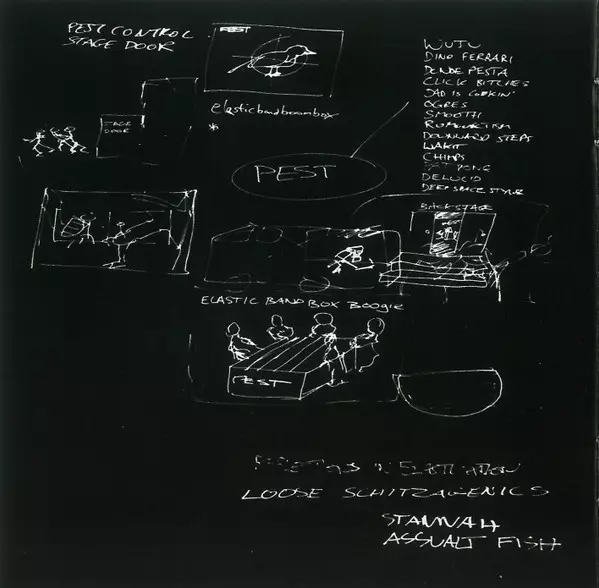 PEST CONTROL
STAGE DOOR
PEST
elasticbandboombox
*
STAGE
DOOR
PEST
WUJU
DINO FERRARI
DENDE PESTA
CLICK BITCHES
DAD IS COOKIN'
OGRES
SMOOTHI
DOWNWARD STEPS
WAKIT
CHIMPS
PONG
DELUCID
DEEP SPACE STYLUS
BACKSTAGE
ELASTIC BAND BOX BOOGIE
PEST
LOOSE SCHITZAGENICS
STANNAH
ASSUALT FISH